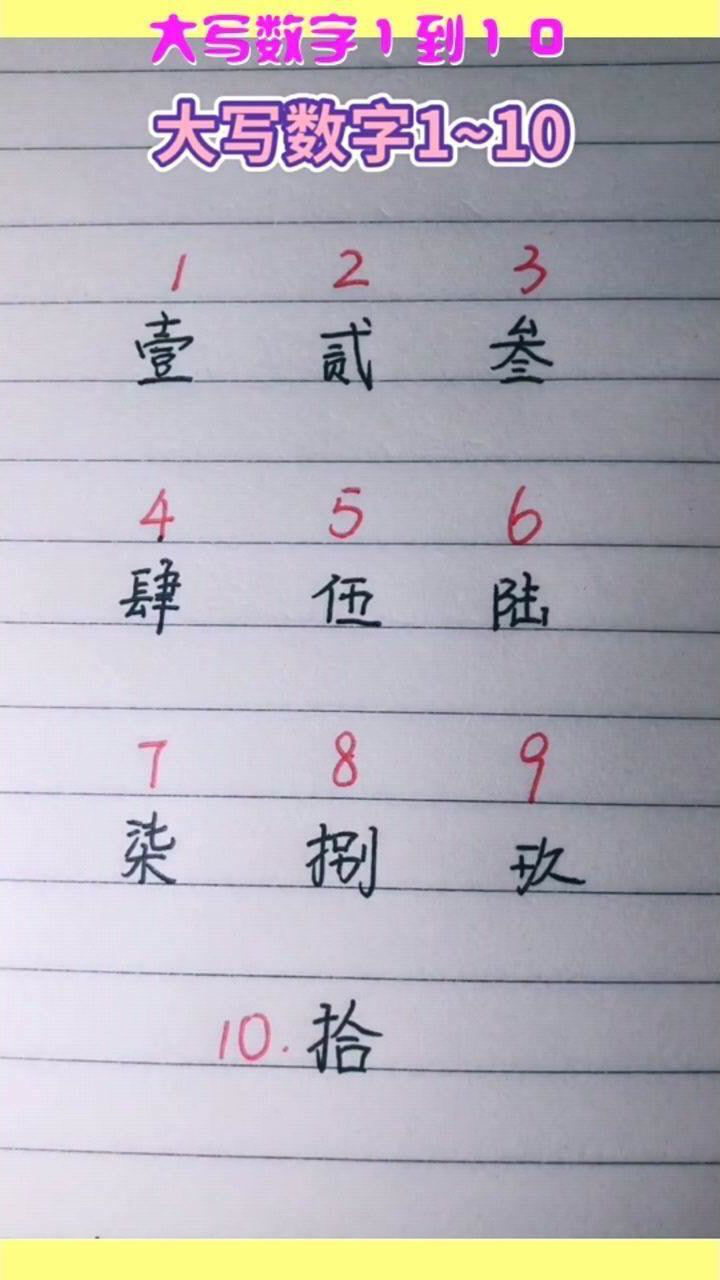 大写数字1到10
大写数字1~10
1 2 3
壹 贰 叁
4 5 6
肆 伍 陆
7 8 9
柒 捌 玖
10. 拾